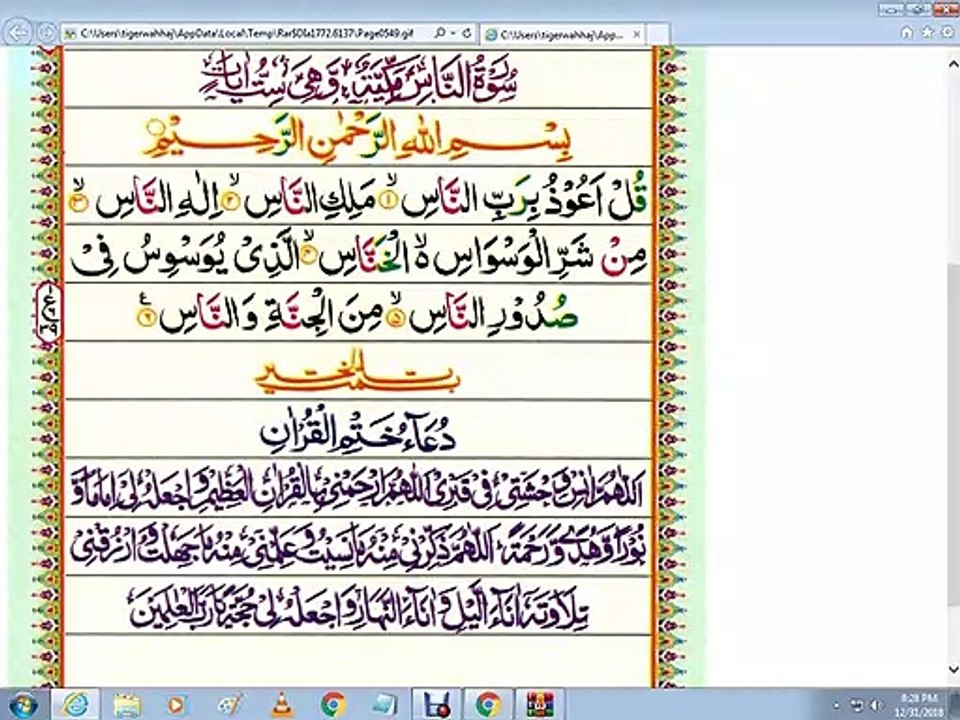 C:\Users\tigerwahhaj\AppData\Local\Temp\Rar$DIa1772.6137\Page0549.gif
C:\Users\tigerwahhaj\App...
سُوْرَةُ النَّاسِ مَكِّيَّةٌ وَّهِيَ سِتُّ اٰيَاتٍ
بِسْمِ اللهِ الرَّحْمٰنِ الرَّحِيْمِ
قُلْ اَعُوْذُ بِرَبِّ النَّاسِ ۙ﴿۱﴾ مَلِكِ النَّاسِ ۙ﴿۲﴾ اِلٰهِ النَّاسِ ۙ﴿۳﴾
مِنْ شَرِّ الْوَسْوَاسِ ۙ۬ الْخَنَّاسِ ۙ﴿۴﴾ الَّذِيْ يُوَسْوِسُ فِيْ
صُدُوْرِ النَّاسِ ۙ﴿۵﴾ مِنَ الْجِنَّةِ وَالنَّاسِ ﴿۶﴾
دُعَآءُ خَتْمِ الْقُرْاٰنِ
اَللّٰهُمَّ اٰنِسْ وَحْشَتِيْ فِيْ قَبْرِيْ اَللّٰهُمَّ ارْحَمْنِيْ بِالْقُرْاٰنِ الْعَظِيْمِ وَاجْعَلْهُ لِيْ اِمَامًا وَّ
نُوْرًا وَّهُدًى وَّرَحْمَةً اَللّٰهُمَّ ذَكِّرْنِيْ مِنْهُ مَا نَسِيْتُ وَعَلِّمْنِيْ مِنْهُ مَا جَهِلْتُ وَارْزُقْنِيْ
تِلَاوَتَهٗ اٰنَآءَ الَّيْلِ وَاٰنَآءَ النَّهَارِ وَاجْعَلْهُ لِيْ حُجَّةً يَّا رَبَّ الْعٰلَمِيْنَ
8:28 PM
12/31/2018